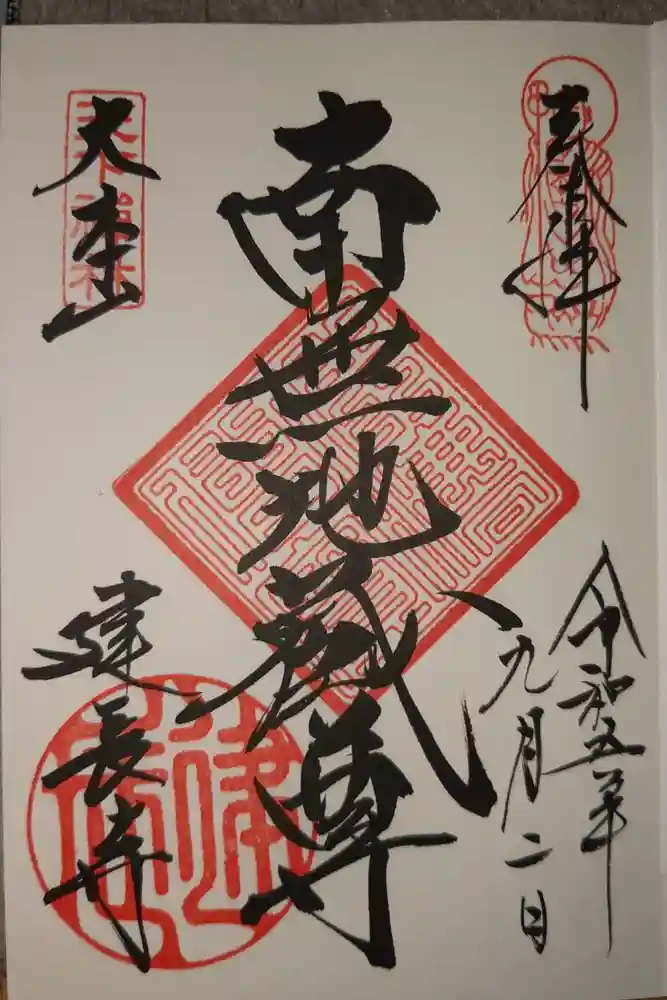 奉拝
令和五年
九月二日
南無地蔵尊
大本山
建長寺